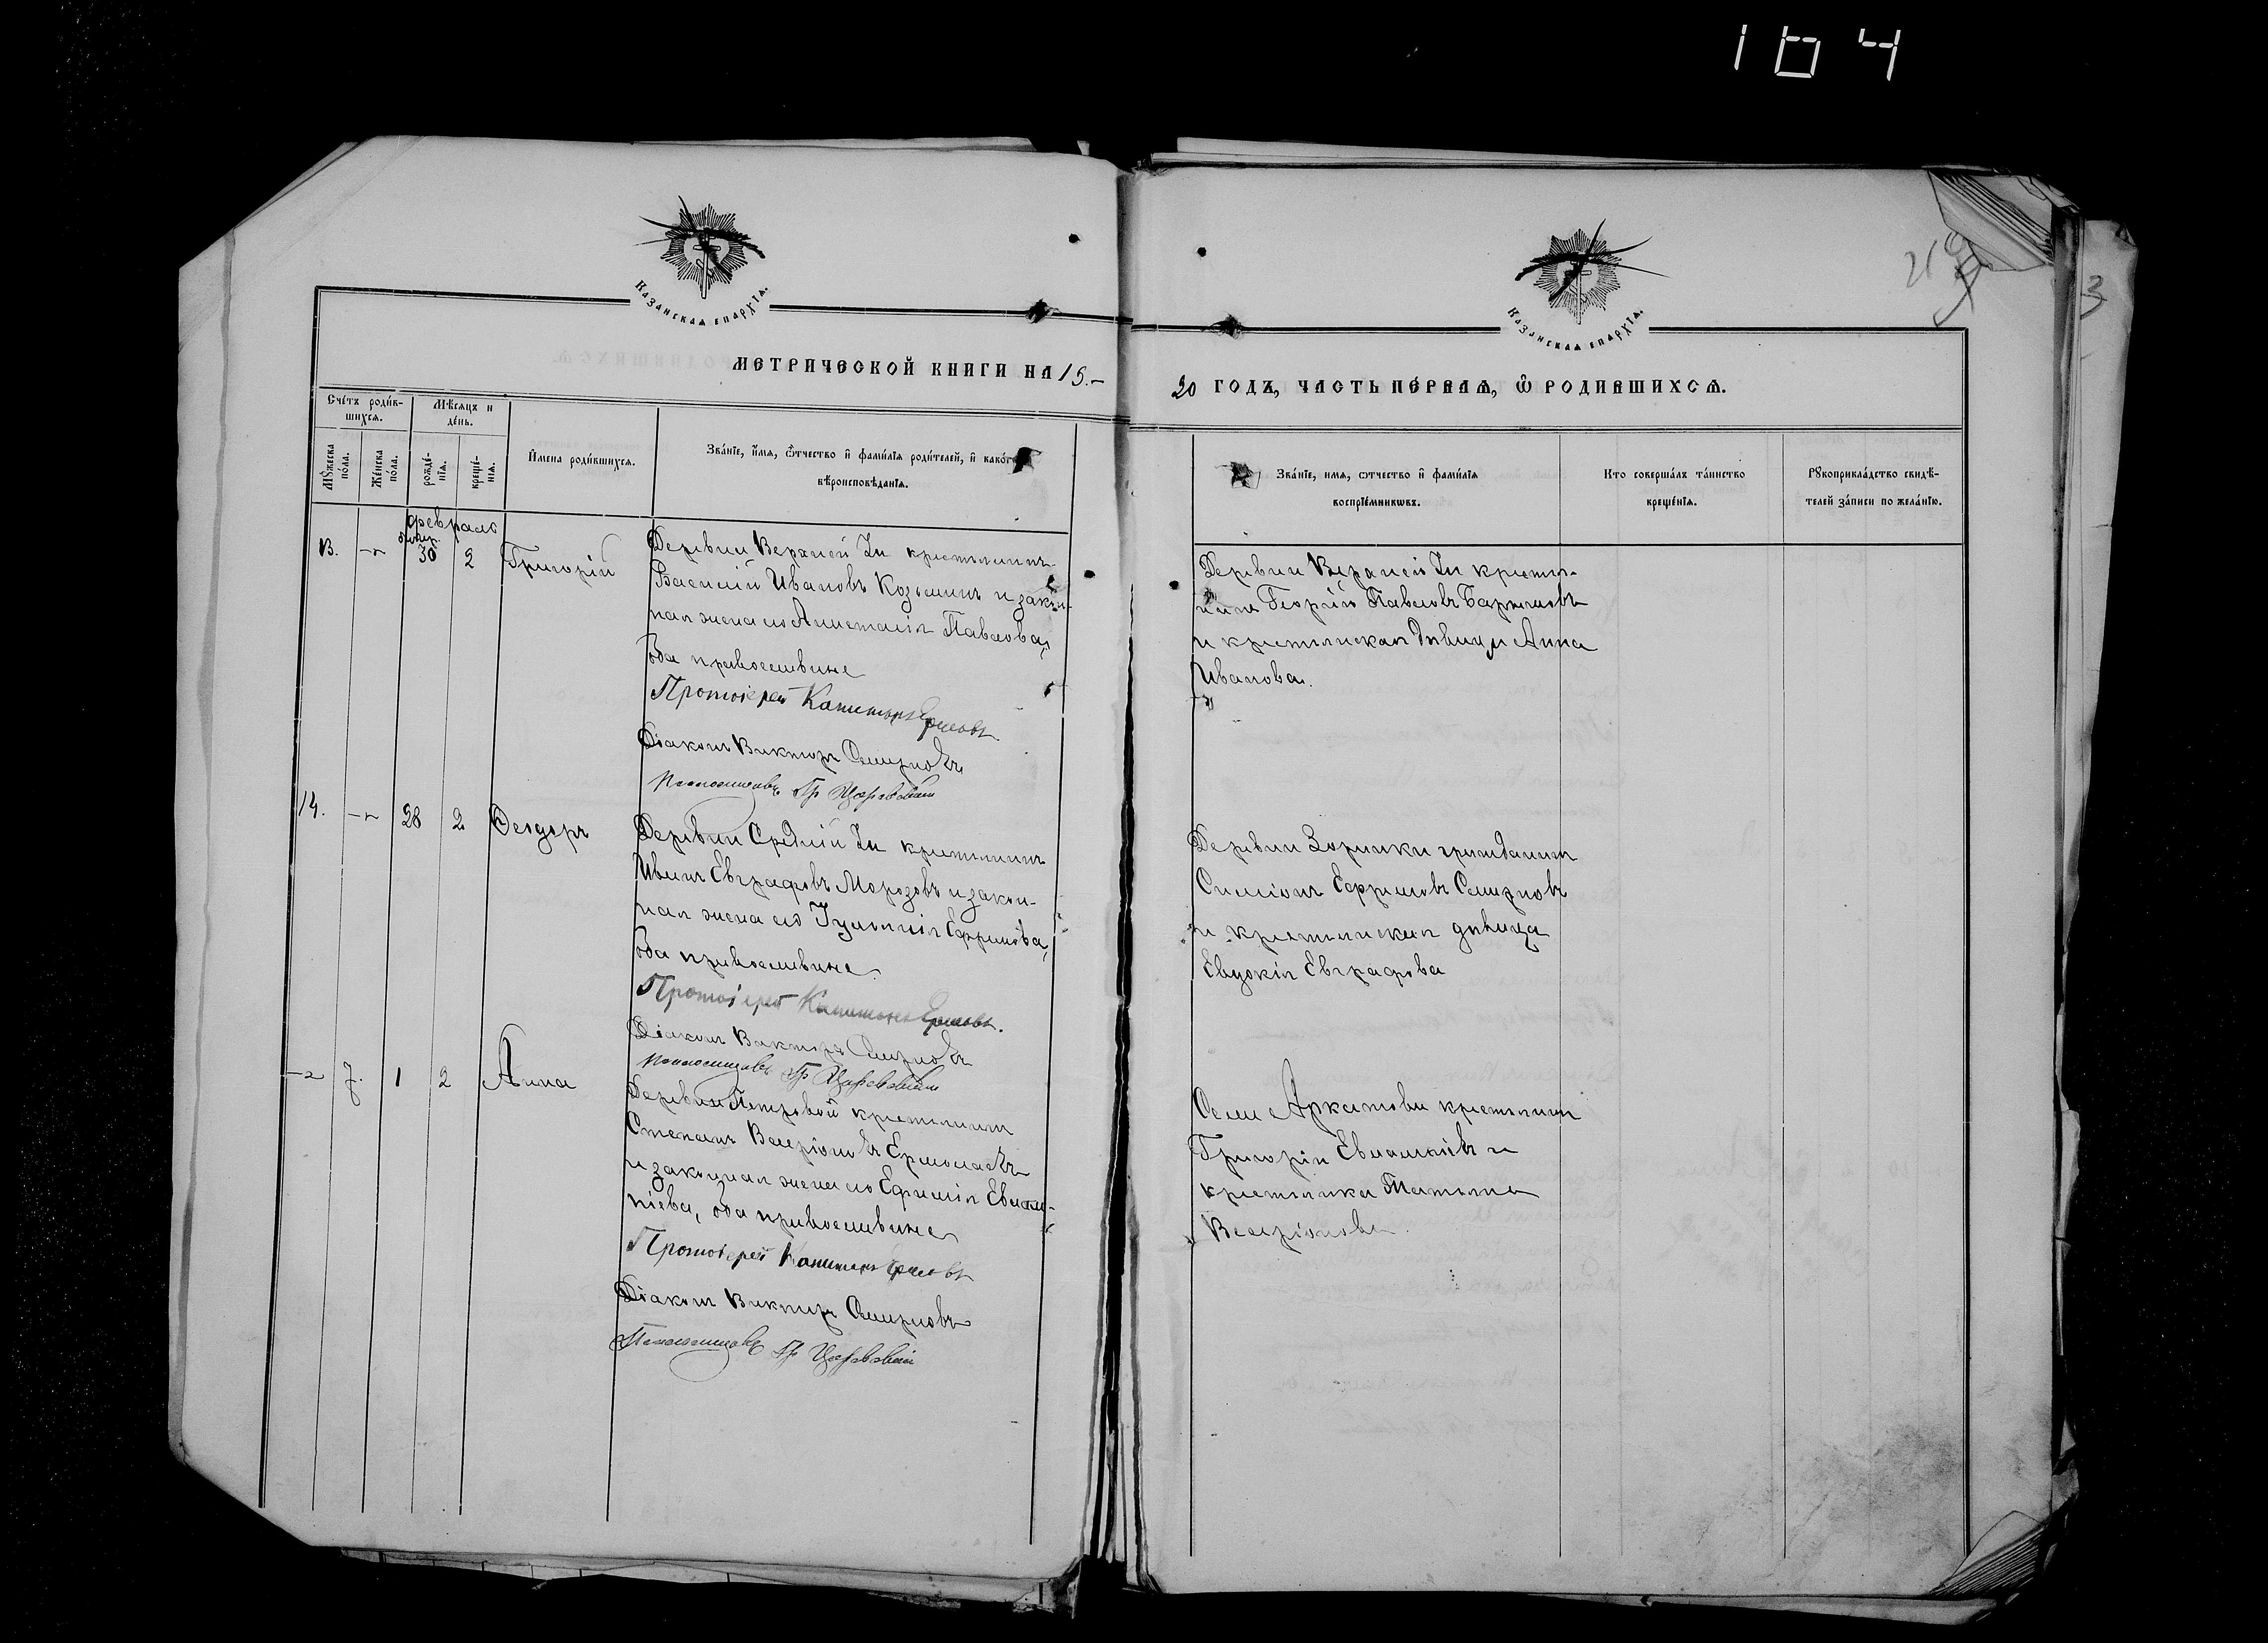 164
Казанская епархїя.
Казанская епархїя.
метрической книги на 19
20 годъ, часть пе́рвая, ѿ родившихся.
Сче́тъ роди́в-
шихся.
Мѣ́сяцъ и
де́нь.
Мꙋ́жеска
по́ла.
Же́нска
по́ла.
рожде́-
нїя.
креще́-
нїя.
И́мена роди́вшихся.
Зва́нїе, и́мя, ѻ́тчество и҆ фами́лїя роди́телей, и҆ како́гѡ
вѣроисповѣ́данїя.
Зва́нїе, имя, ѻтчество и҆ фами́лїя
воспрїе́мникѡвъ.
Кто соверша́лъ та́инство
креще́нїя.
Рꙋкоприкла́дство свидѣ́-
телей за́писи по жела́нїю.
февраль
13. 30 2 Григорій
Деревни Верхней Іи крестьянинъ
Василій Ивановъ Козьминъ и закон-
ная жена его Анастасія Павлова,
оба православные
Протоіерей Капитонъ Ершовъ.
Діаконъ Викторъ Смирновъ
Псаломщикъ Гр
Деревни Верхней Іи крестья-
нинъ Георгій Павловъ
и крестьянская дѣвица Анна
Иванова.
14. 28 2 Ѳеодоръ
Деревни Средній Іи крестьянинъ
Иванъ Евграфовъ Морозовъ и закон-
ная жена его Іуліанія Ефремова,
оба православные
Протоіерей Капитонъ Ершовъ.
Діаконъ Викторъ Смирновъ
Псаломщикъ Гр
Деревни гражданинъ
Симеонъ Ефремовъ Смирновъ
и крестьянская дѣвица
Евдокія Евграфова
7. 1 2 Анна
Деревни Петровой крестьянинъ
Степанъ Валеріановъ Ермолаевъ
и законная жена его Ефимія Евлам-
піева, оба православные
Протоіерей Капитонъ Ершовъ
Діаконъ Викторъ Смирновъ
Псаломщикъ Гр
Села крестьянинъ
Григорій Евлампіевъ и
крестьянка Татьяна
Валеріанова.